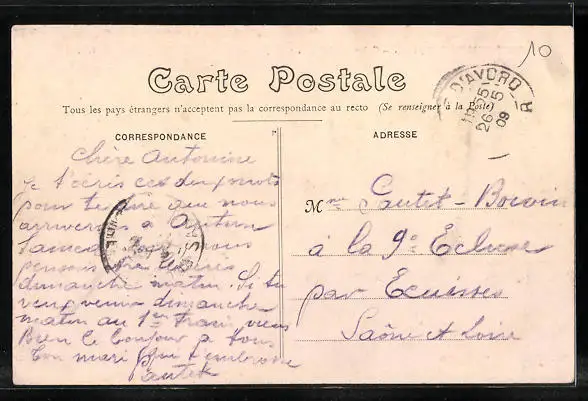 10
Carte Postale
Tous les pays étrangers n'acceptent pas la correspondance au recto (Se renseigner à la Poste)
D'AVORD
26 5 09
CORRESPONDANCE
ADRESSE
Chère Antonine
Je t'écris ces deux mots
pour te dire que nous
arriverons a Autun
nous
pensons
dimanche matin. Si tu
veux venir dimanche
matin au 1er train, viens
Bien le bonjour a tous
ton mari qui t'embrasse
autet
Mme Sautet-Boivin
à la 9e Ecluse
par Ecuisses
Saône et Loire